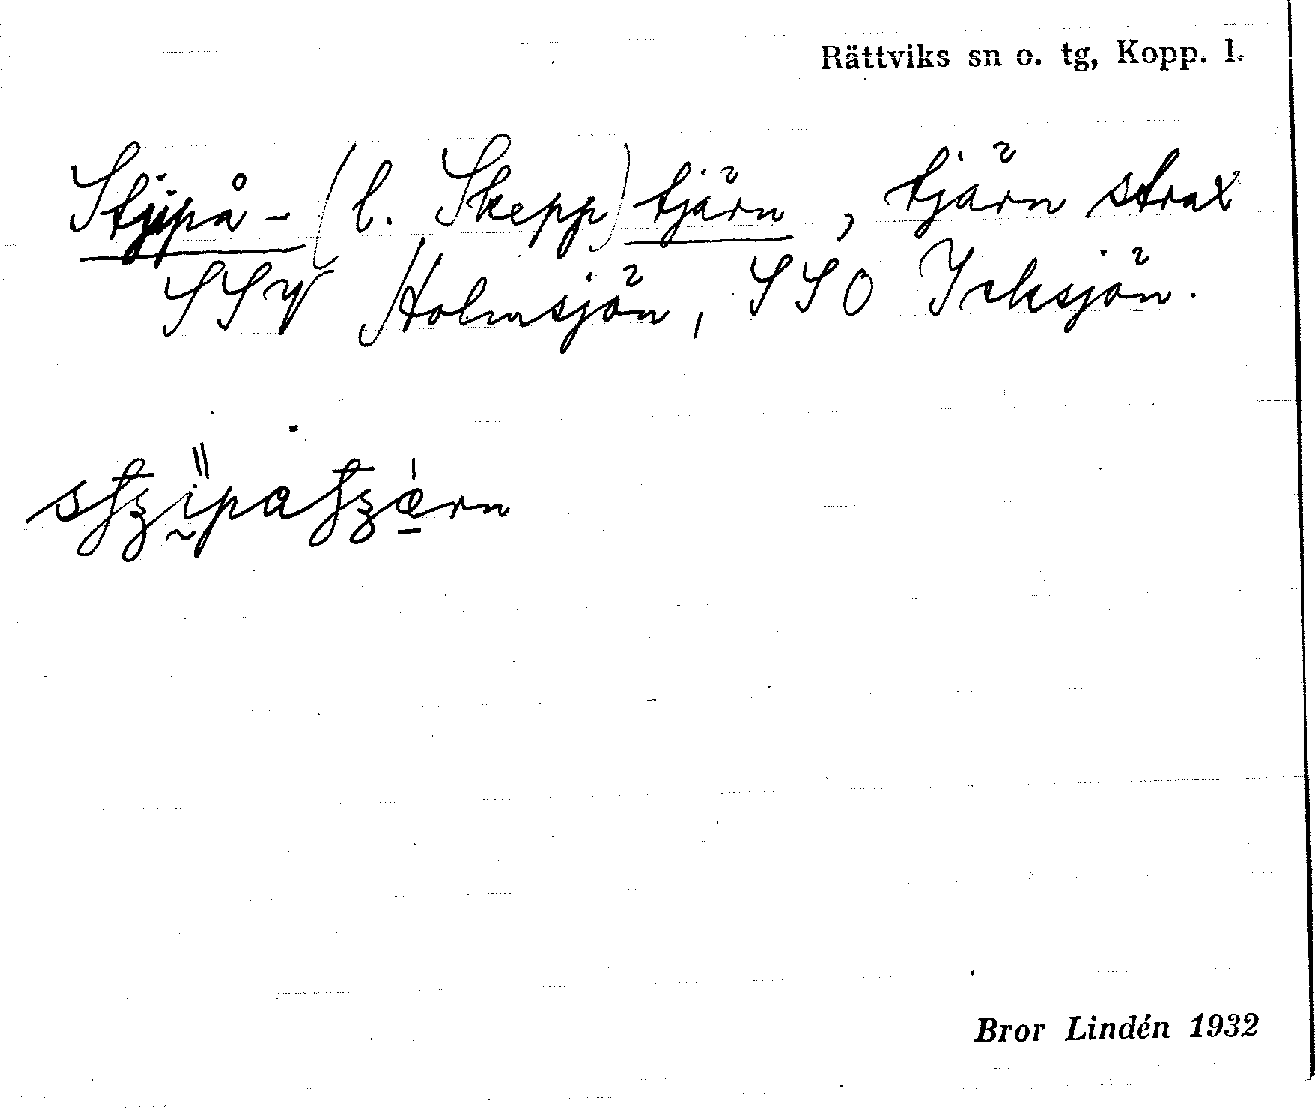 Rättviks sn o. tg, Kopp. l.
Stjipå- (l. Skepp) tjärn, tjärn strax
SSV Holmsjön, SSO Icksjön.
Bror Lindén 1932